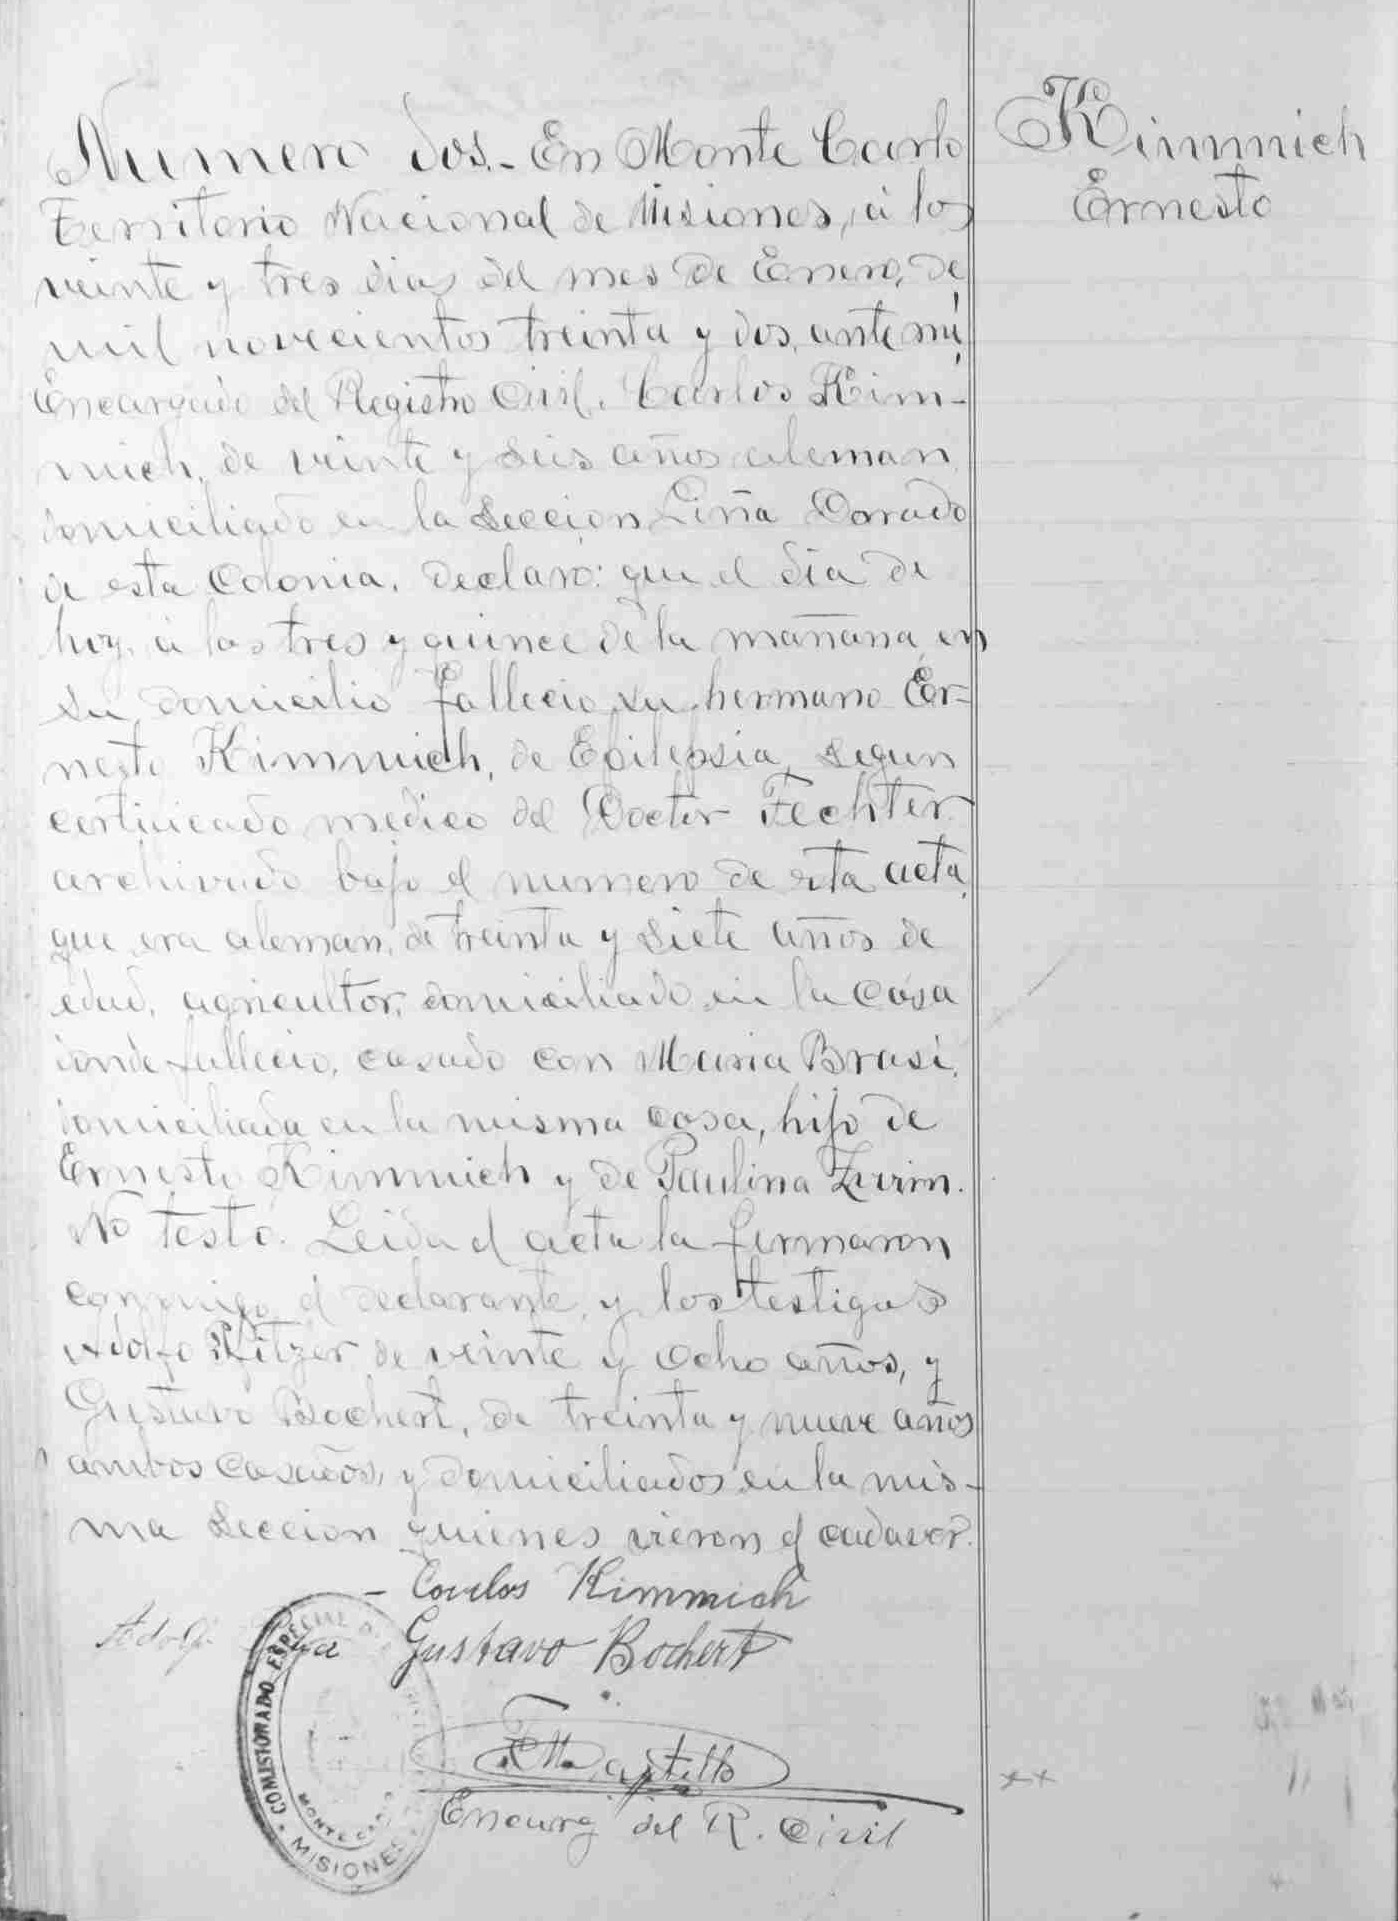 Numero dos.- En Monte Carlo
Territorio Nacional de Misiones, á los
veinte y tres dias del mes de Enero, de
mil novecientos treinta y dos, ante mi,
Encargado del Registro Civil. Carlos Kim-
mich, de veinte y seis años aleman
domiciliado en la Seccion Liña Dorado
de esta Colonia. declaró: que el dia de
hoy, á las tres y quince de la mañana, en
su domicilio fallecio su hermano Er-
nesto Kimmich, de Epilepsia, segun
certificado medico del Doctor Fechter
archivado bajo el numero de esta acta,
que era aleman, de treinta y siete años de
edad, agricultor, domiciliado en la casa
donde fallecio, casado con Maria Brasi,
domiciliada en la misma casa, hijo de
Ernesto Kimmich y de Paulina
No testó. Leida el acta la firmaron
conmigo el declarante, y los testigos
Adolfo de veinte y ocho años, y
Gustavo Bochert, de treinta y nueve años
ambos casados, y domiciliados en la mis-
ma Seccion quienes vieron el cadaver.
- Carlos Kimmich
Adolf
Gustavo Bochert
Encarg del R. Civil
COMISIONADO ESPECIAL
MONTE CARLO
MISIONES
Kimmich
Ernesto